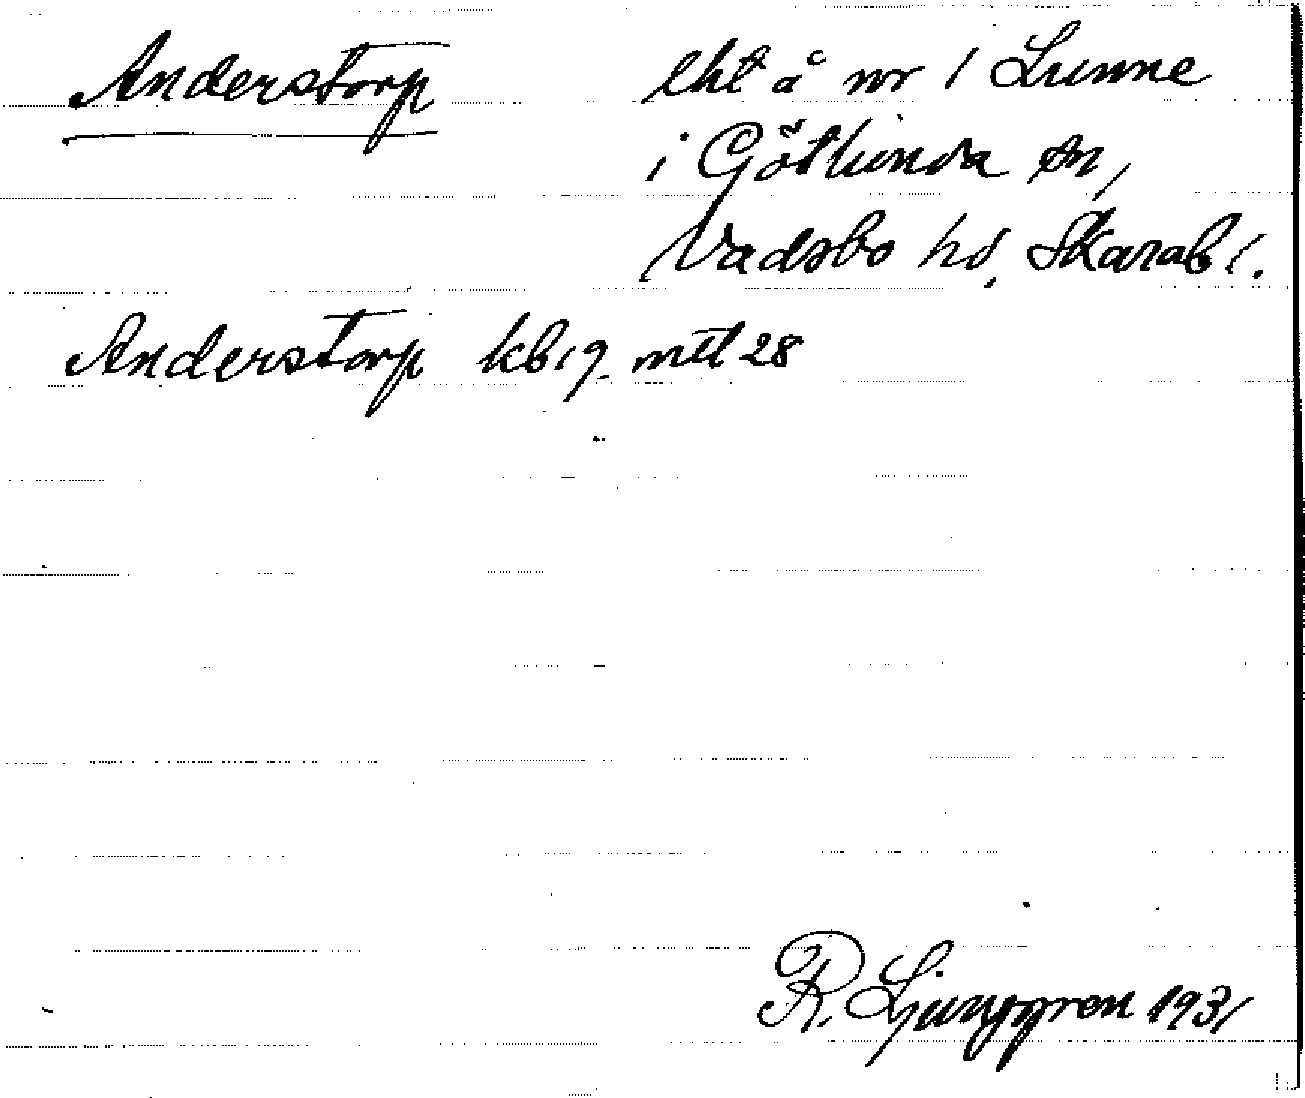 Anderstorp lht å nr 1 Lunne
i Götlunda sn,
Vadsbo hd, Skarab l.
Anderstorp kb 19 mtl 28
R. Ljunggren 1931